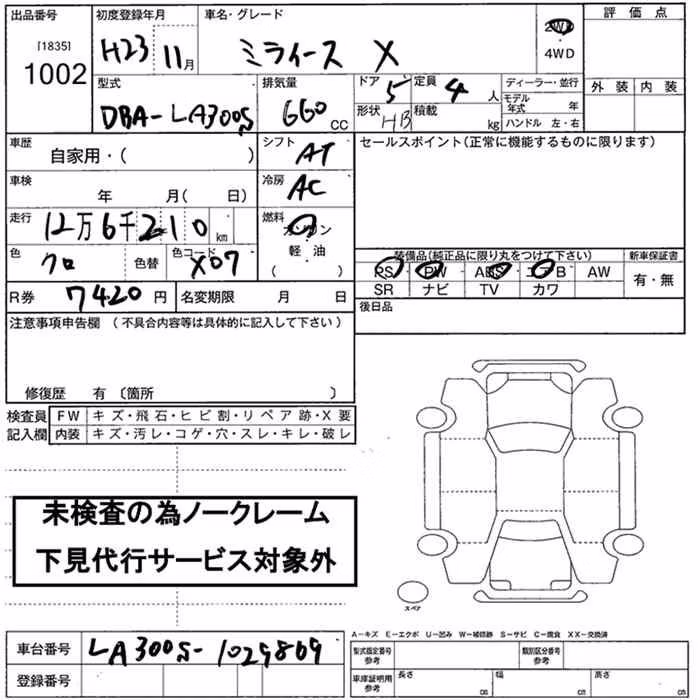 出品番号 初度登録年月 車名・グレード 評価点
[1835]
1002 H23 11月 ミライース X 2WD
・
4WD
外装 内装
型式 排気量 ドア 5 定員 4 人 ディーラー・並行
DBA-LA300S 660 CC 形状 HB 積載 kg モデル年式 年
ハンドル 左・右
車歴 シフト セールスポイント(正常に機能するものに限ります)
自家用・( ) AT
車検 冷房
年 月( 日) AC
走行 燃料
12万6千210km ガソリン
・
軽油
( )
色 色コード 装備品(純正品に限り丸をつけて下さい) 新車保証書
クロ 色替 X07 PS・PW・ABS・エアB・AW 有・無
SR ナビ TV カワ
R券 7420円 名変期限 月 日 後日品
注意事項申告欄(不具合内容等は具体的に記入して下さい)
修復歴 有〔箇所 〕
検査員 FW キズ・飛石・ヒビ割・リペア跡・X要
記入欄 内装 キズ・汚レ・コゲ・穴・スレ・キレ・破レ
未検査の為ノークレーム
下見代行サービス対象外
スペア
A−キズ E−エクボ U−凹み W−補修跡 S−サビ C−腐食 XX−交換済
車台番号 LA300S-1029869
登録番号
型式指定番号 参考 類別区分番号 参考
車庫証明用 参考 長さ cm 幅 cm 高さ cm